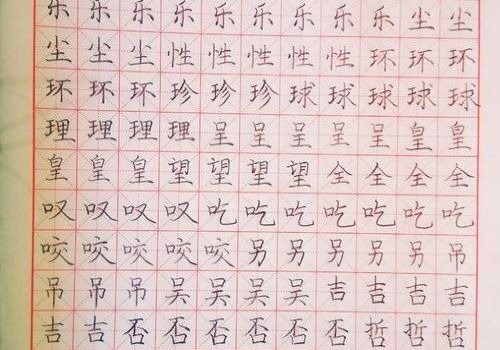 乐乐乐乐乐乐乐乐乐尘尘
尘尘尘性性性性性环环环
环环环珍珍珍球球球球球
理理理理呈呈呈呈呈皇皇
皇皇皇望望望望全全全全
叹叹叹叹吃吃吃吃吃吃吃
咬咬咬咬咬另另另另另吊
吊吊吊吴吴吴吴吉吉吉吉
吉吉否否否否否否哲哲哲